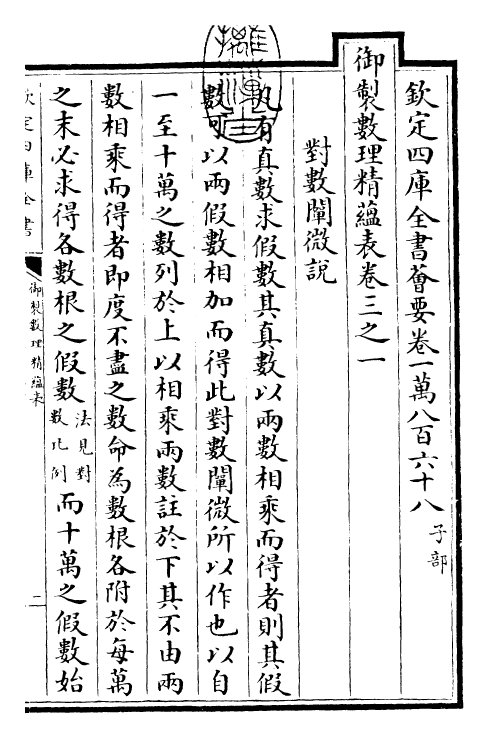 欽定四庫全書薈要卷一萬八百六十八 子部
御製數理精蘊表卷三之一
對數闡微說
凡有真數求假數其真數以兩數相乘而得者則其假
數可以兩假數相加而得此對數闡微所以作也以自
一至十萬之數列於上以相乘兩數註於下其不由兩
數相乘而得者即度不盡之數命為數根各附於每萬
之末必求得各數根之假數法見對數比例而十萬之假數始
欽定四庫全書
御製數理精蘊表